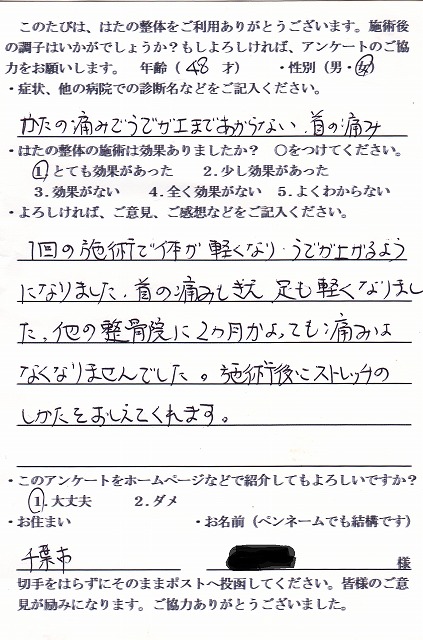 このたびは、はたの整体をご利用ありがとうございます。施術後
の調子はいかがでしょうか？もしよろしければ、アンケートのご協
力をお願いします。 年齢（ 48 才） ・性別（男・女）
・症状、他の病院での診断名などをご記入ください。
かたの痛みでうでが上まであがらない、首の痛み
・はたの整体の施術は効果ありましたか？ ○をつけてください。
１.とても効果があった ２.少し効果があった
３.効果がない ４.全く効果がない ５.よくわからない
・よろしければ、ご意見、ご感想などをご記入ください。
1回の施術で体が軽くなり、うでが上がるよう
になりました、首の痛みもきえ 足も軽くなりまし
た。他の整骨院に2ヵ月かよっても痛みは
なくなりませんでした。施術後にストレッチの
しかたをおしえてくれます。
・このアンケートをホームページなどで紹介してもよろしいですか？
１.大丈夫 ２.ダメ
・お住まい ・お名前（ペンネームでも結構です）
千葉市 様
切手をはらずにそのままポストへ投函してください。皆様のご意
見が励みになります。ご協力ありがとうございました。